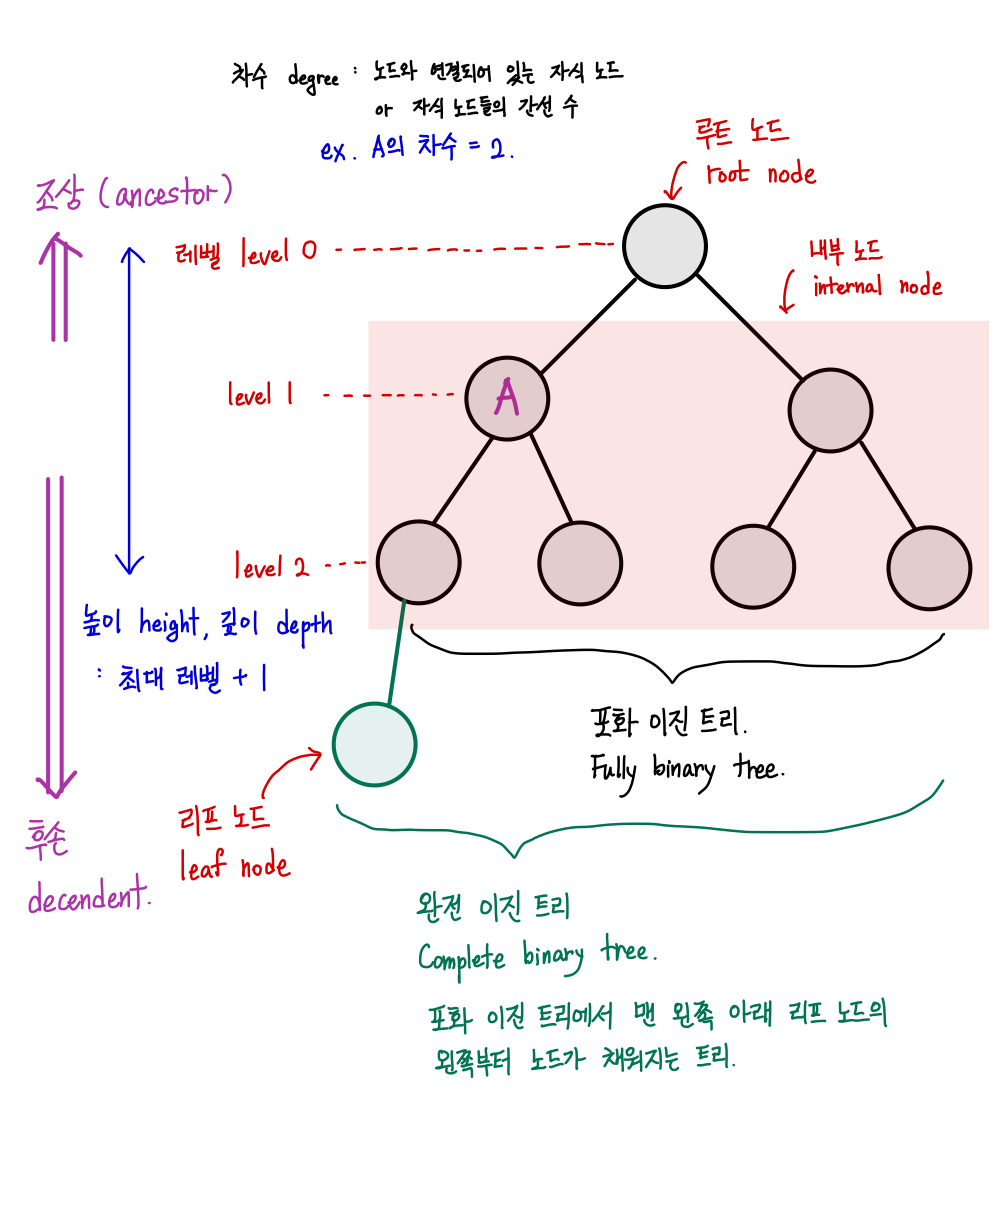 차수 degree : 노드와 연결되어 있는 자식 노드
아 자식 노드들의 간선 수
ex. A의 차수 = 2.
루트 노드
root node
조상 (ancestor)
레벨 level 0
내부 노드
internal node
level 1
A
level 2
높이 height, 깊이 depth
: 최대 레벨 + 1
포화 이진 트리.
Fully binary tree.
리프 노드
leaf node
후손
decendent.
완전 이진 트리
Complete binary tree.
포화 이진 트리에서 맨 왼쪽 아래 리프 노드의
왼쪽부터 노드가 채워지는 트리.